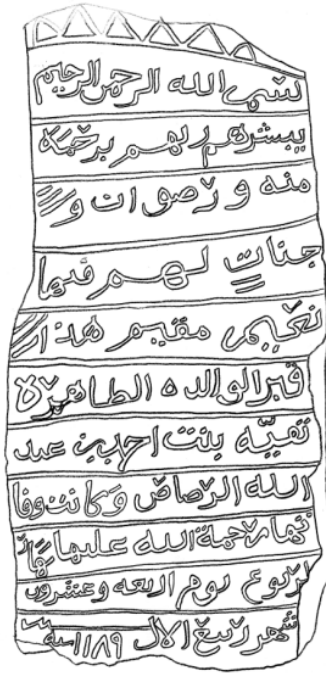 بسم الله الرحمن الرحيم
يبشرهم ربهم برحمة
منه ورضوان و
جنات لهم فيها
نعيم مقيم هذا
قبر الوالده الطاهرة
تقيه بنت احمد بن عبد
الله الرصاص وكانت وفا
تها رحمة الله عليها
لربوع يوم اربعه وعشرون
شهر ربيع الاول سنة ١١٨٩